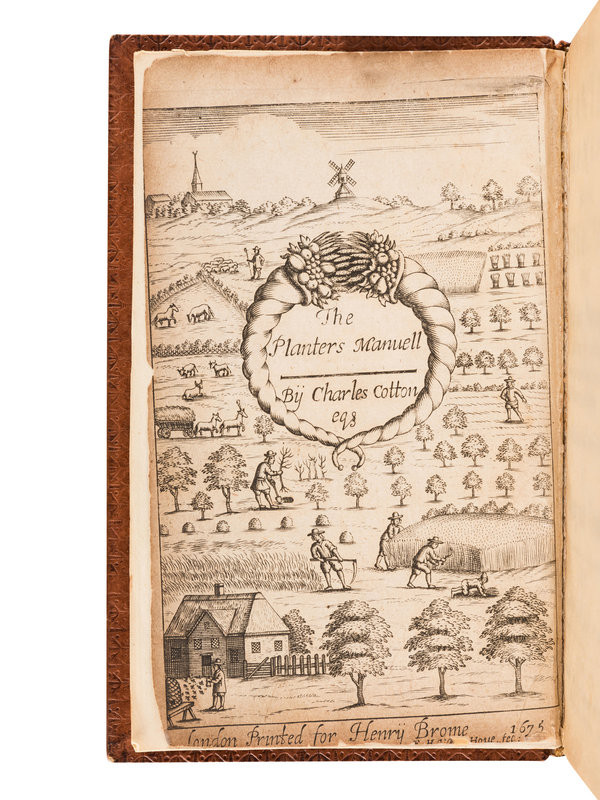 The
Planters Manuell
Bÿ Charles Cotton
eqs
London Printed for Henrÿ Brome 1675
Hove, fec: